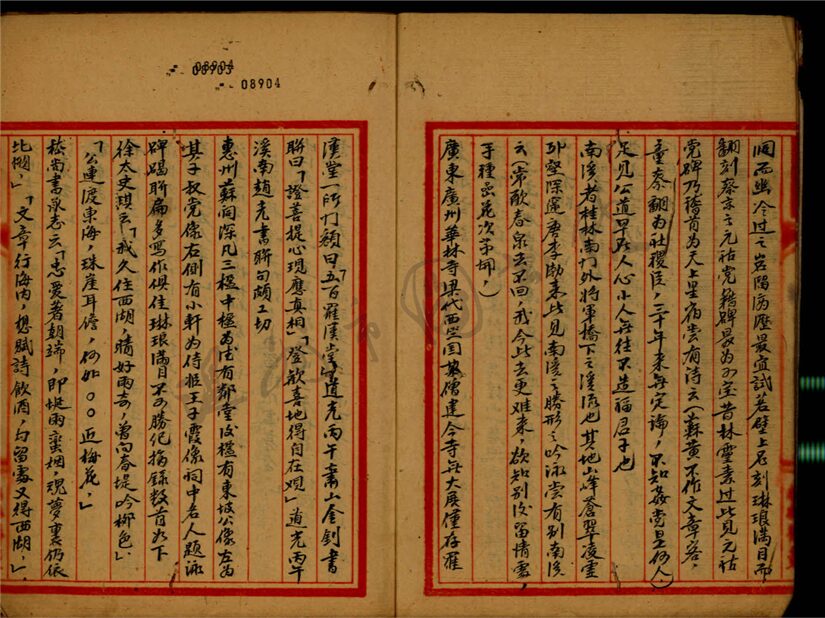 洞而幽冷过之岩隔两壁最宜試茗壁上石刻琳琅满目而
翻刻蔡京之元祐党籍碑最为可宝昔林靈素过此見元祐
党碑乃稽首为天上星宿尝有诗云(蘇黄不作文章客,
童蔡翻为社稷臣,二十年来無定論,不知姦党是何人)
足見公道早在人心小人每往不造福君子也
南溪者桂林南门外将軍橋下之溪流也其地山峰蒼翠凌霊
邱壑深邃唐李勃来此見南溪之勝形之吟詠尝有别南溪
云(常歎春泉去不回,我今此去更难来,欲知别後留情處,
手種岩花次第開,)
廣東廣州華林寺梁代西竺国異僧建今寺無大展僅存羅
漢堂一所门额曰「五百羅漢堂」道光丙午蕭山金釗書
聯曰「證菩提心現應真相」「登歡喜地得自在观」道光丙午
溪南趙光書聯句頗工切
惠州蘇祠深凡三楹中楹为法有鄰堂後楹有東坡公像左为
其子叔党像右側有小軒为侍姬王子霞像祠中名人題詠
碑碣聯扁多寫作俱佳琳琅满目不可勝纪摘録数首如下
徐太史琪云「我久住西湖,晴好雨奇,曾向春堤吟柳色」
「公連渡東海,珠崖耳儋,何如〇〇近梅花,」
崧尚書承志云「忠愛着朝端,即蜑雨蛮烟,魂夢裏仍依
北闕,」「文章行海内,想賦詩飲酒,勾留處又得西湖,」
08903
08904
08904